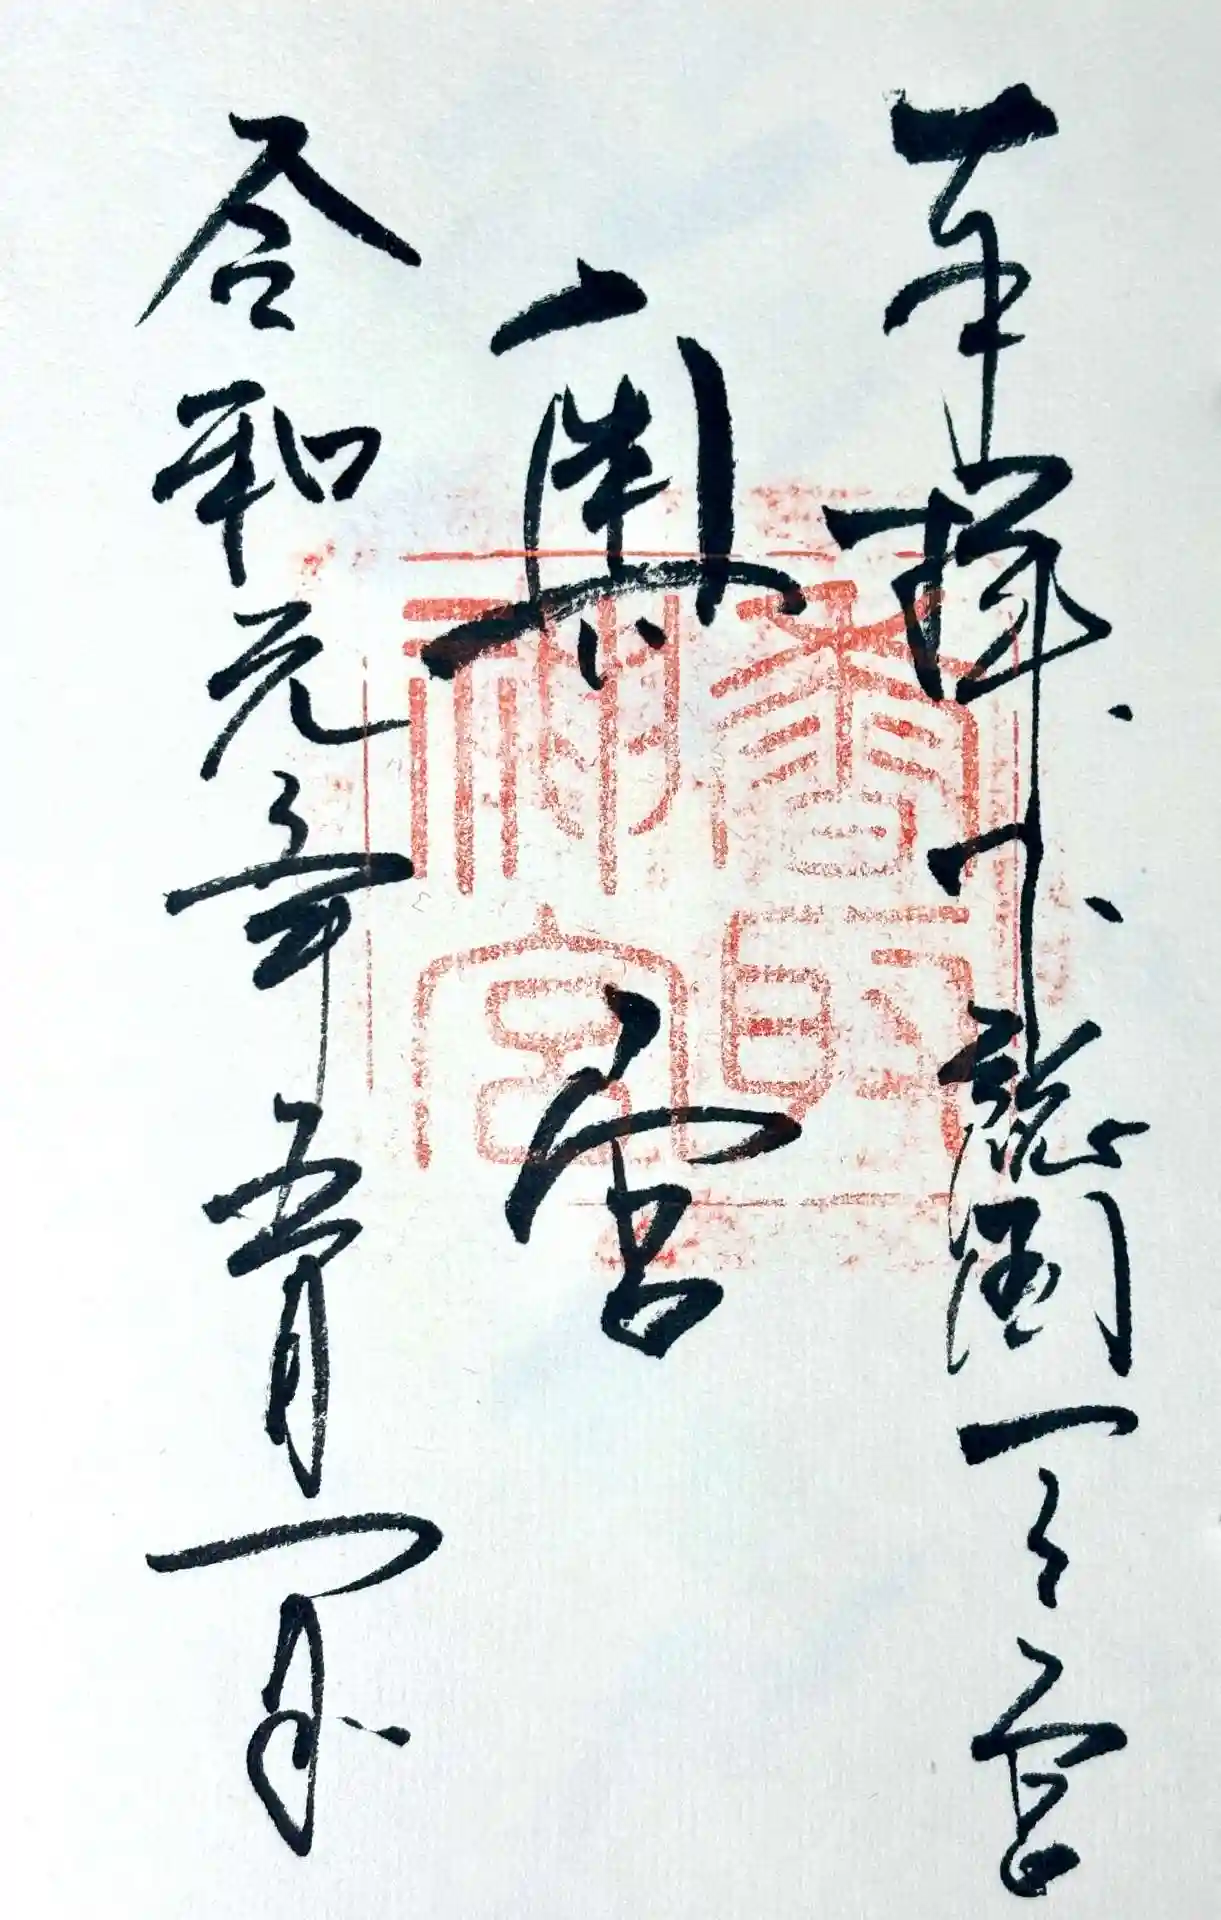 奉拝下総國一之宮
奥宮
令和元年五月一日
香取
神宮